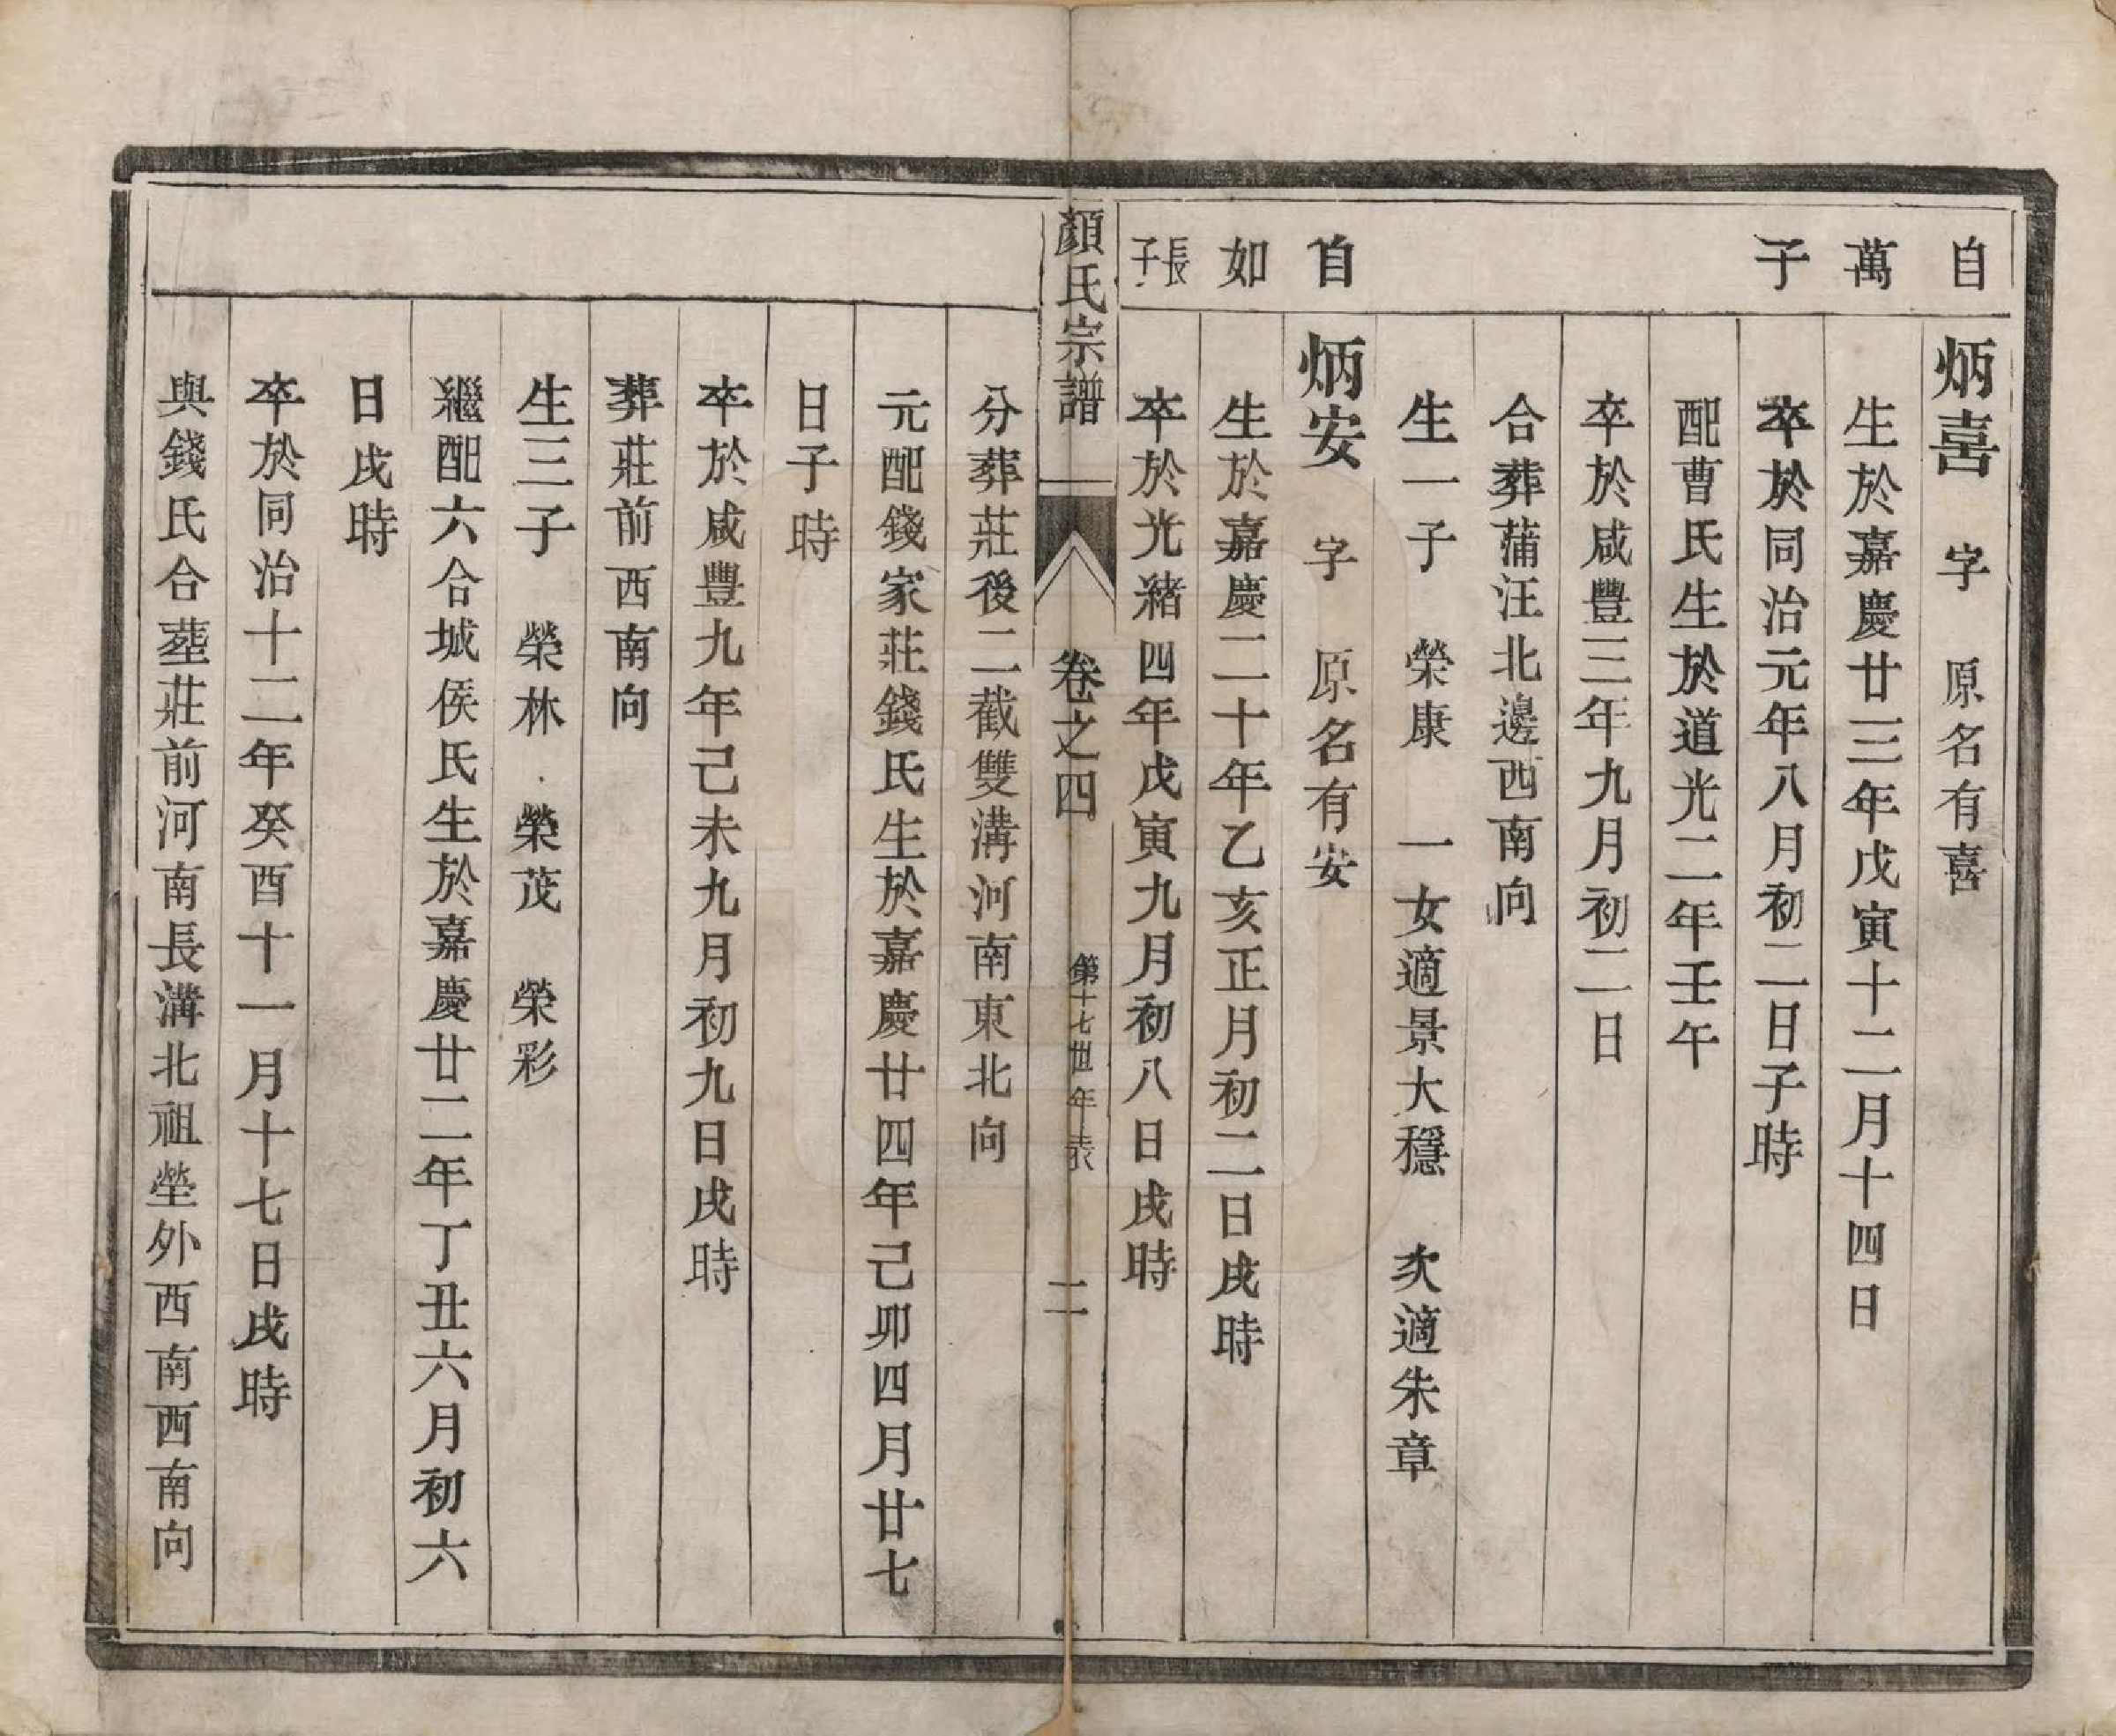 自萬子
炳喜 字 原名有喜
生於嘉慶廿三年戊寅十二月十四日
卒於同治元年八月初二日子時
配曹氏生於道光二年壬午
卒於咸豐三年九月初二日
合葬蒲汪北邊西南向
生一子 榮康 一女適景大穩 次適朱章
自如長子
炳安 字 原名有安
生於嘉慶二十年乙亥正月初二日戌時
卒於光緒四年戊寅九月初八日戌時
顏氏宗譜 卷之四 第十七世年表 二
分葬莊後二截雙溝河南東北向
元配錢家莊錢氏生於嘉慶廿四年己卯四月廿七
日子時
卒於咸豐九年己未九月初九日戌時
葬莊前西南向
生三子 榮林 榮茂 榮彩
繼配六合城侯氏生於嘉慶廿二年丁丑六月初六
日戌時
卒於同治十二年癸酉十一月十七日戌時
與錢氏合塟莊前河南長溝北祖塋外西南西南向